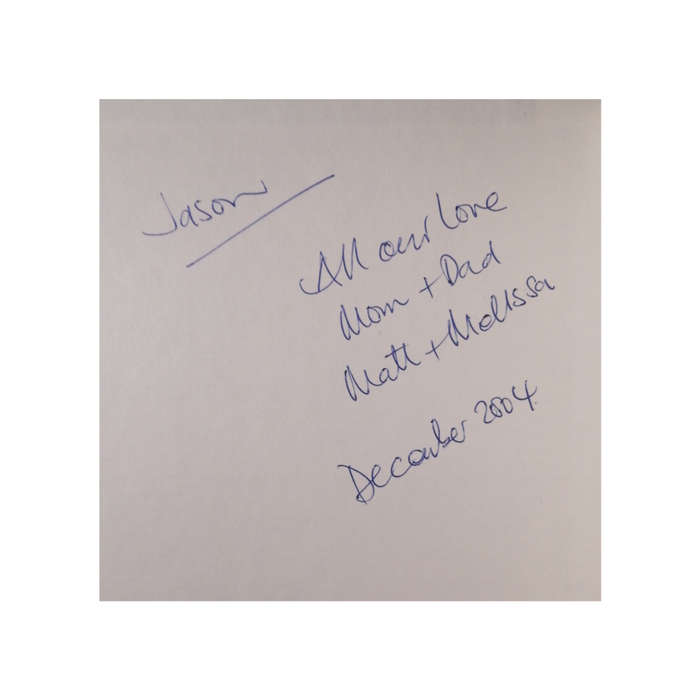 Jason
All our love
Mom + Dad
Matt + Melissa
December 2004